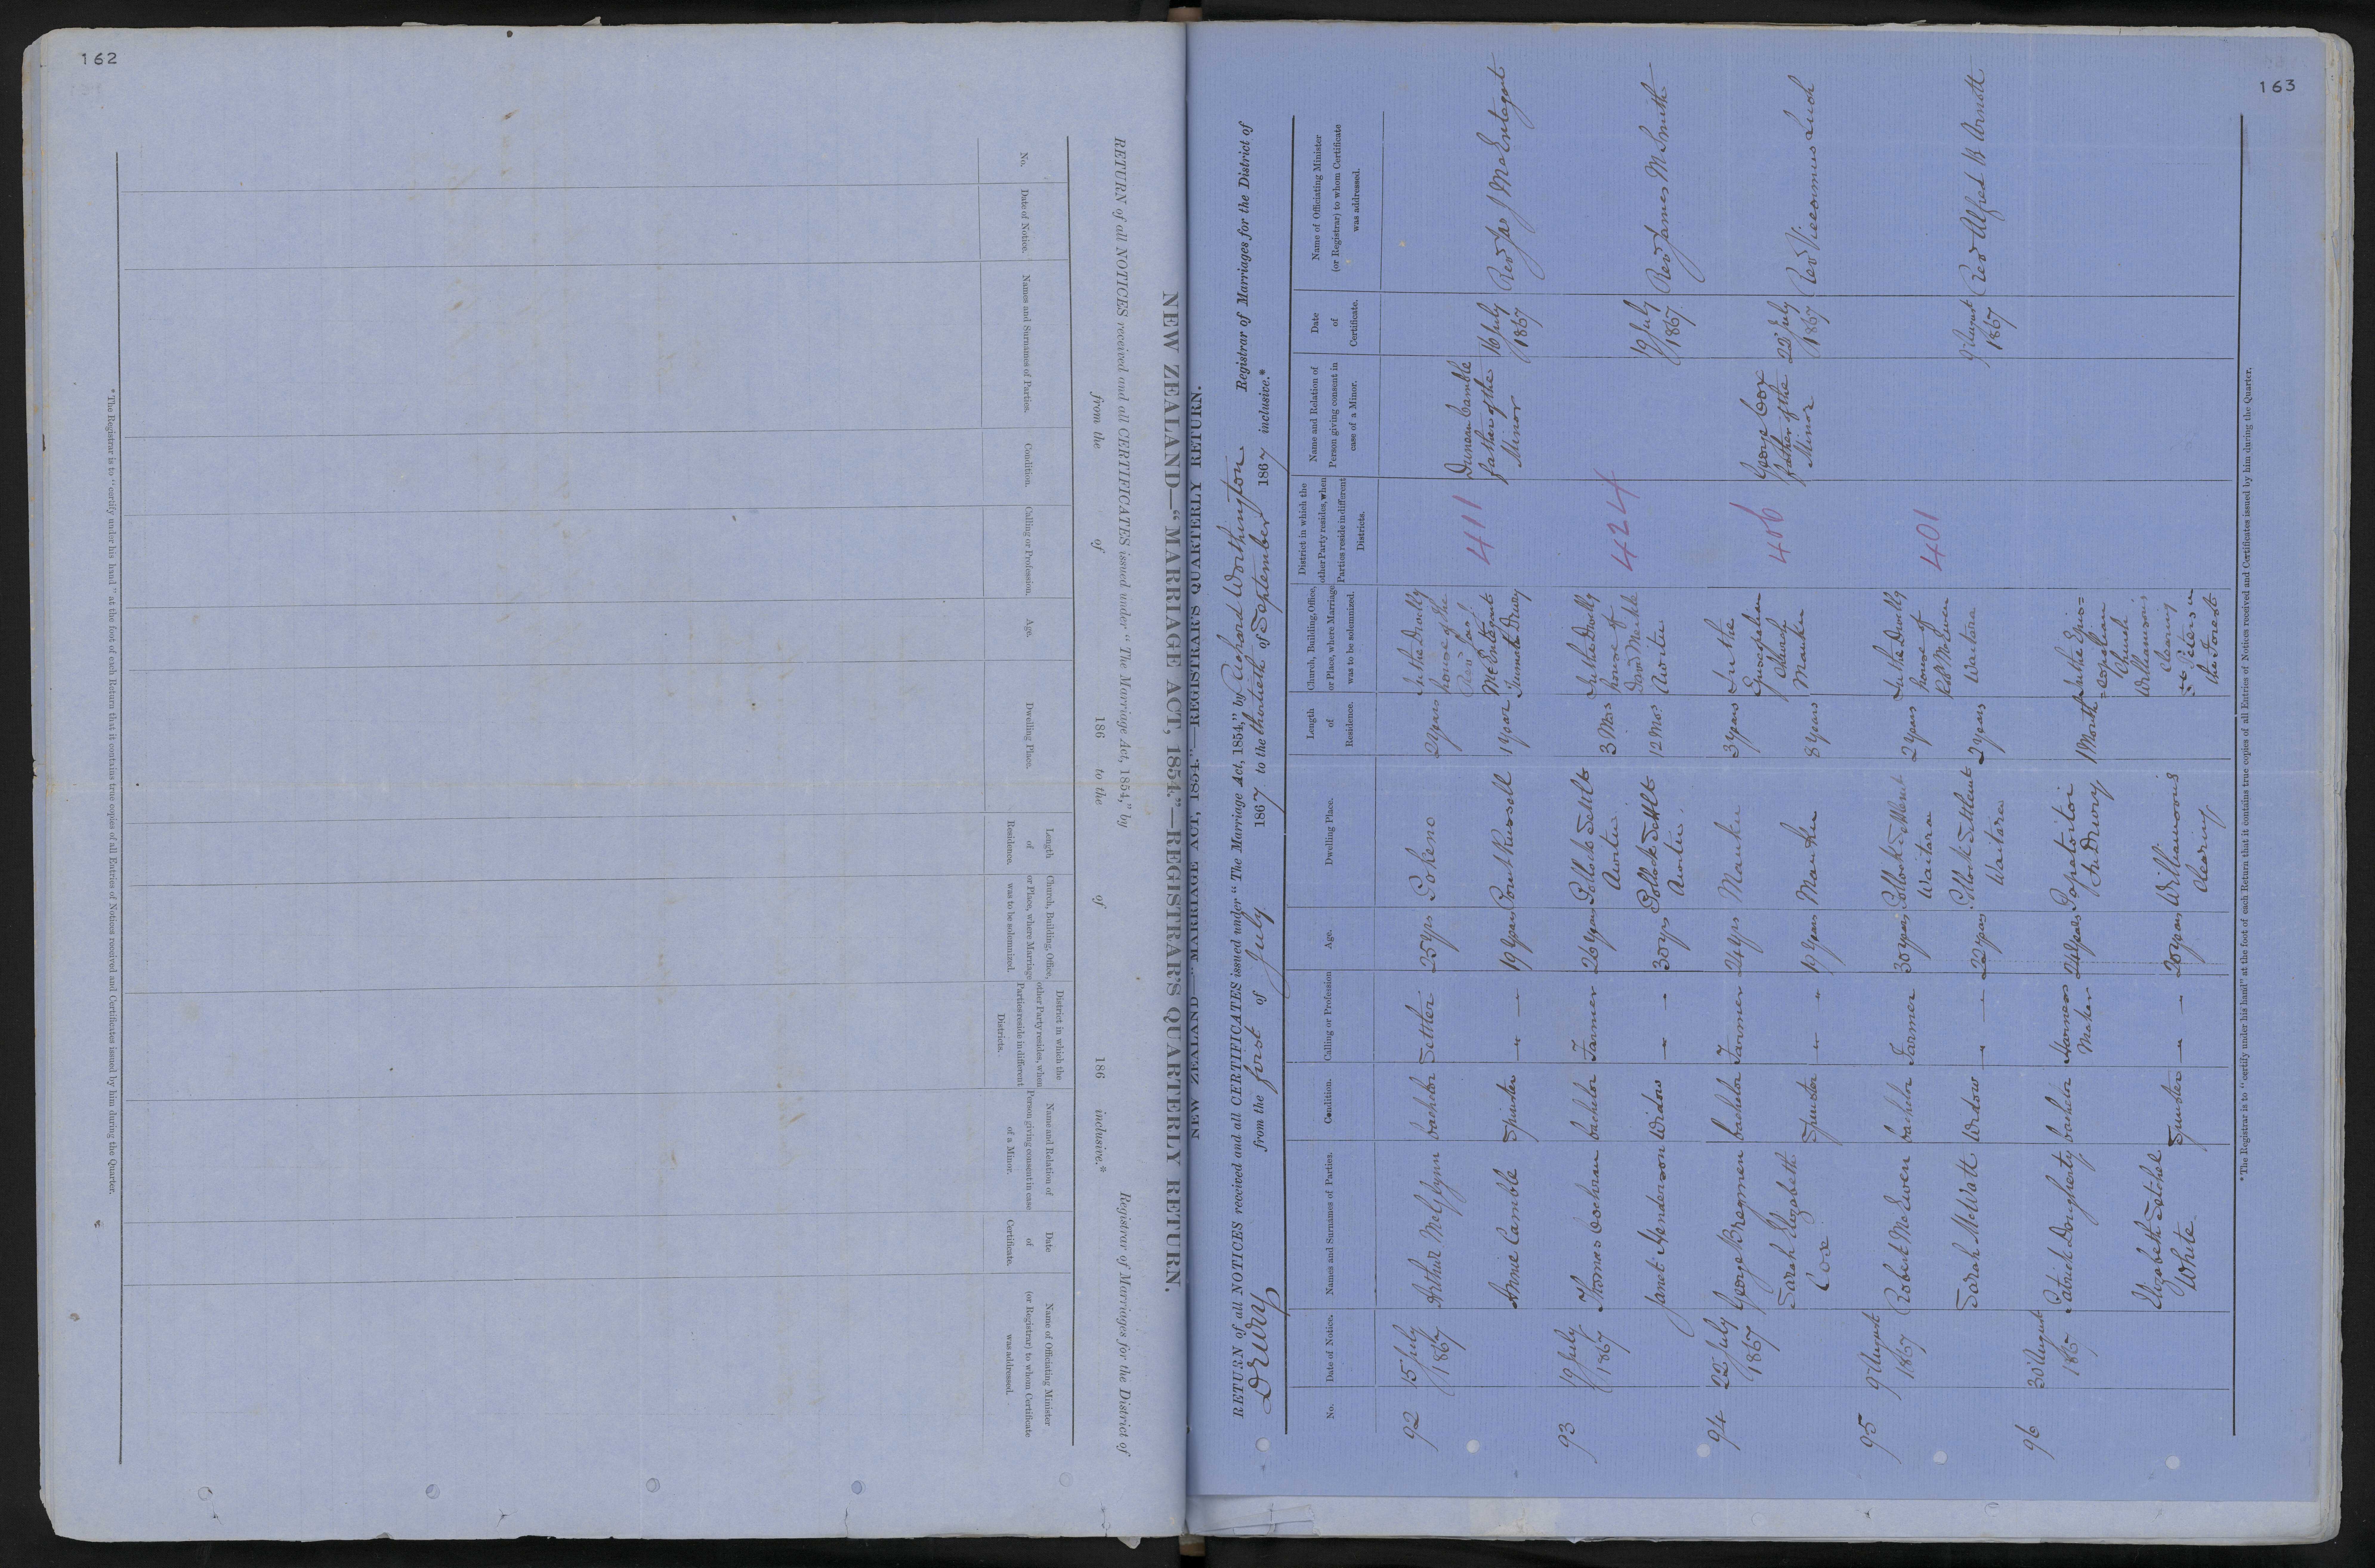 162
NEW ZEALAND—"MARRIAGE ACT, 1854."—REGISTRAR'S QUARTERLY RETURN.
RETURN of all NOTICES received and all CERTIFICATES issued under "The Marriage Act, 1854," by Registrar of Marriages for the District of
from the of 186 to the of 186 inclusive.*
No.
Date of Notice.
Names and Surnames of Parties.
Condition.
Calling or Profession.
Age.
Dwelling Place.
Length
of
Residence.
Church, Building, Office,
or Place, where Marriage
was to be solemnized.
District in which the
other Party resides, when
Parties reside in different
Districts.
Name and Relation of
Person giving consent in case
of a Minor.
Date
of
Certificate.
Name of Officiating Minister
(or Registrar) to whom Certificate
was addressed.
*The Registrar is to "certify under his hand" at the foot of each Return that it contains true copies of all Entries of Notices received and Certificates issued by him during the Quarter.
163
NEW ZEALAND—"MARRIAGE ACT, 1854."—REGISTRAR'S QUARTERLY RETURN.
RETURN of all NOTICES received and all CERTIFICATES issued under "The Marriage Act, 1854," by Richard Worthington Registrar of Marriages for the District of
Drury from the first of July 1867 to the thirtieth of September 1867 inclusive.*
No.
Date of Notice.
Names and Surnames of Parties.
Condition.
Calling or Profession
Age.
Dwelling Place.
Length
of
Residence.
Church, Building, Office,
or Place, where Marriage
was to be solemnized.
District in which the
other Party resides, when
Parties reside in different
Districts.
Name and Relation of
Person giving consent in
case of a Minor.
Date
of
Certificate.
Name of Officiating Minister
(or Registrar) to whom Certificate
was addressed.
92
15 July
1867
Arthur McGlynn
bachelor
Settler
25 yrs
Pokeno
2 years
Annie Camble
Spinster
19 years
Point Russell
1 year
In the Dwelly
house of the
Revd Jas
McEntagart
Drury
411
Duncan Camble
father of the
Minor
16 July
1867
Revd Jas J McEntagart
93
19 July
1867
Thomas Cochran
bachelor
Farmer
26 years
Pollock Settlt
Awitu
3 Mos
Janet Henderson
Widow
30 yrs
Pollock Settlt
Awitu
12 Mos
In the Dwelly
house of
Awitu
424
19 July
1867
Revd James M Smith
94
22 July
1867
George Bregmen
bachelor
Farmer
24 yrs
Mauku
3 years
Sarah Elizabeth
Cox
Spinster
19 years
Mauku
8 years
In the
Episcopalian
Church
Mauku
406
George Cox
father of the
Minor
22 July
1867
Revd Vicesimus Lush
95
9 August
1867
Robert McEwen
bachelor
Farmer
30 years
Pollock Settlement
Waitara
2 years
Sarah McWatt
Widow
22 years
Pollock Settlement
Waitara
2 years
In the Dwelly
house of
McEwen
Waitara
401
9 August
1867
Revd Alfred B Arnott
96
30 August
1867
Patrick Dougherty
bachelor
Harness
Maker
24 years
Papatoitoi
Drury
1 Month
Elizabeth Setchel
White
Spinster
20 years
Williamsons
Clearing
In the Epis=
=copalian
Church
Williamsons
Clearing
St Peters in
the Forest
*The Registrar is to "certify under his hand" at the foot of each Return that it contains true copies of all Entries of Notices received and Certificates issued by him during the Quarter.